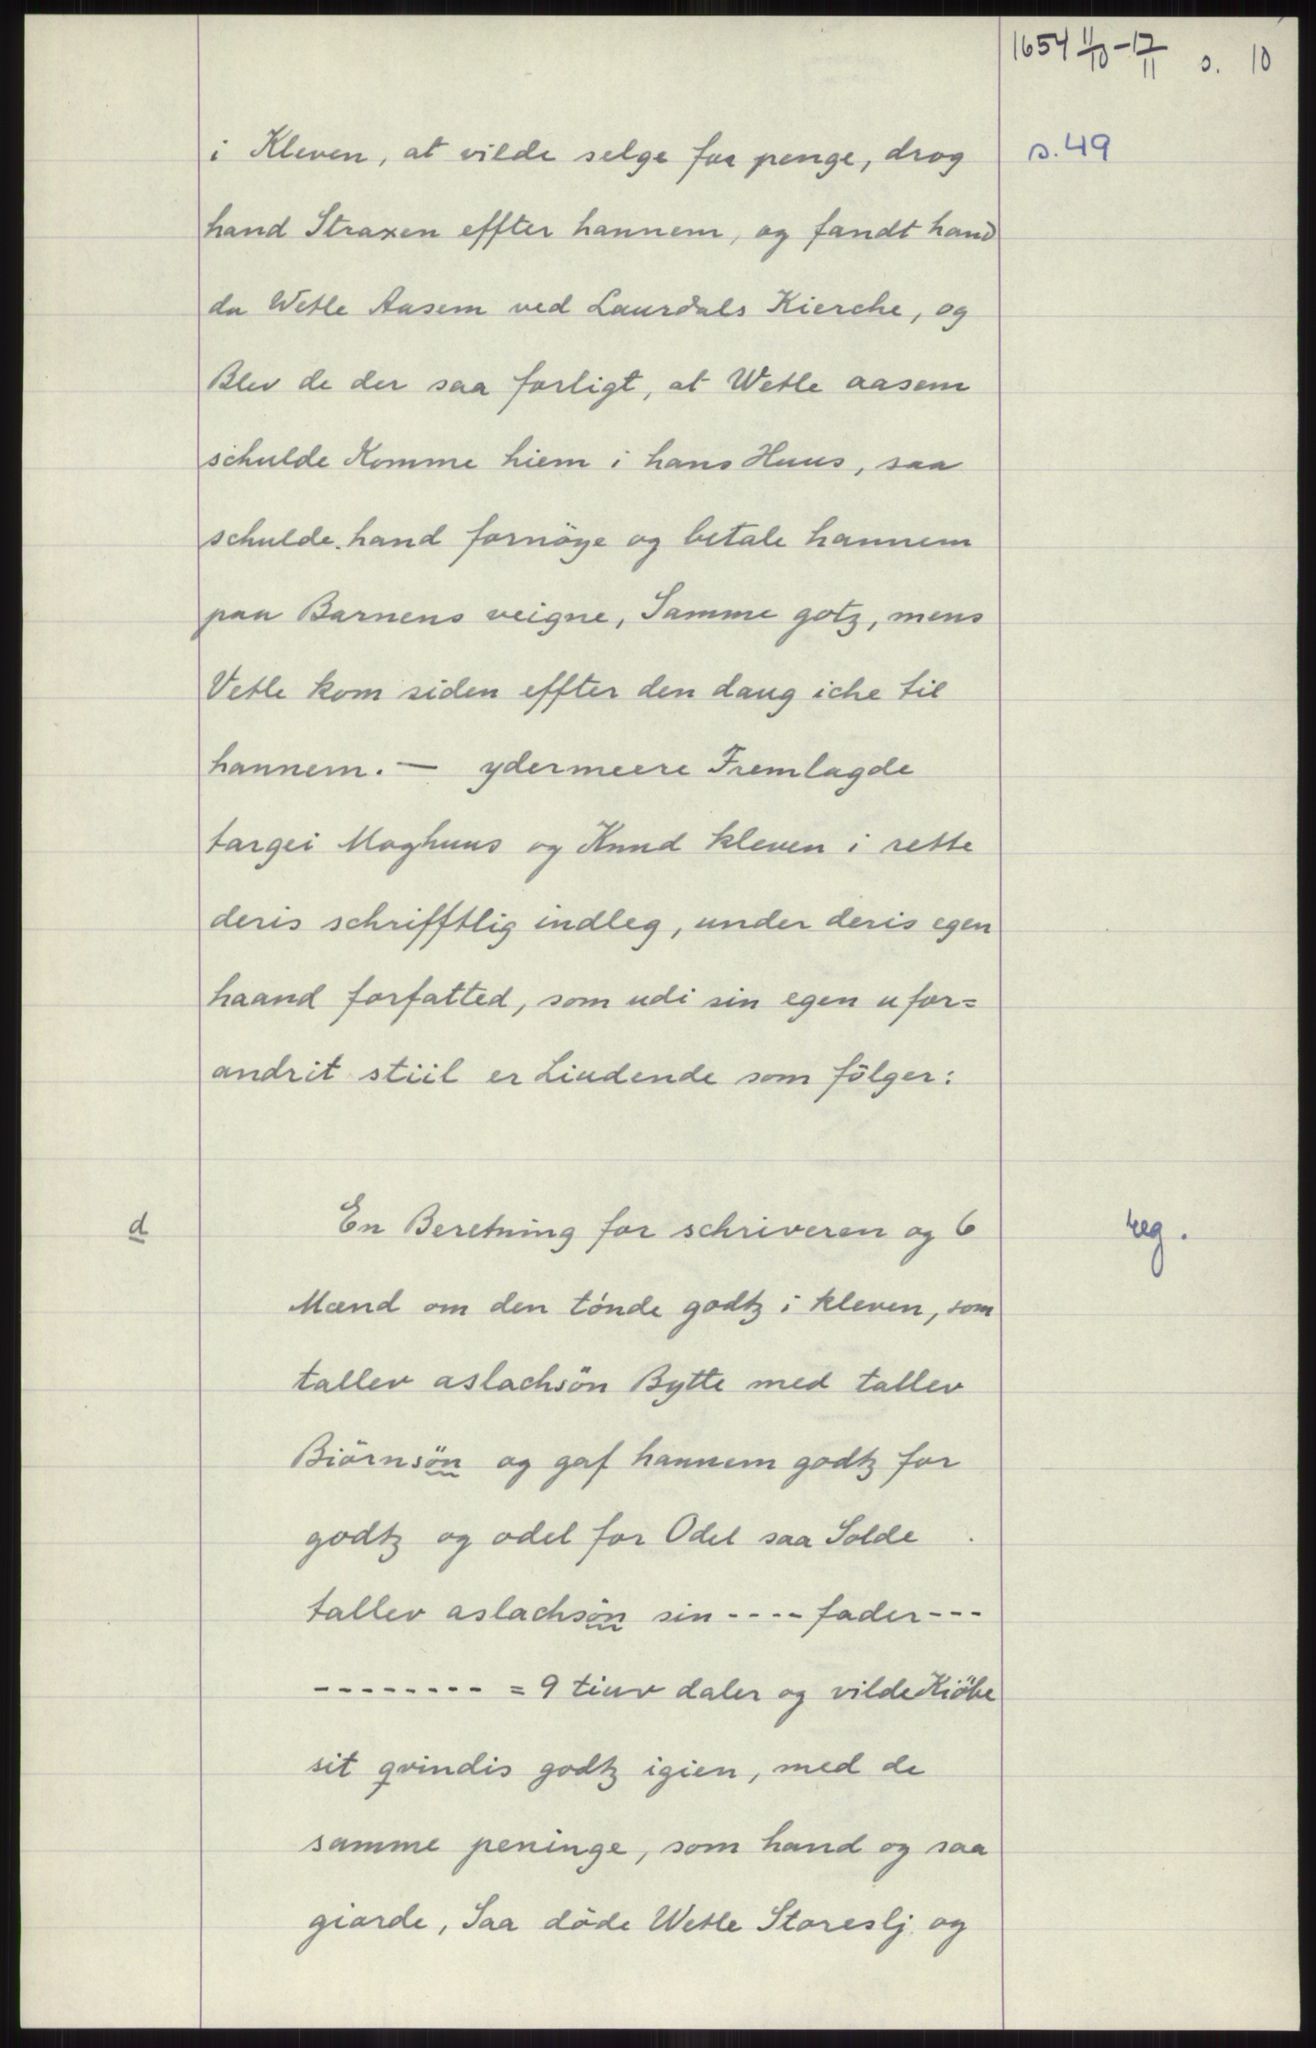 1654 11/10 - 17/11 s. 10
i Kleven, at vilde selge for penge, drog
s. 49
hand Straxen effter hannem, og fandt hand
da Wetle Aasem ved Laurdals Kierche, og
Blev de der saa forligt, at Wetle aasem
schulde Komme hiem i hans Huus, saa
schulde hand fornöye og betale hannem
paa Barnens veigne, Samme gotz, mens
Vetle kom siden effter den daug iche til
hannem. — ydermeere Fremlagde
targei Moghuus og Knud kleven i rette
deris schrifftlig indleg, under deris egen
haand forfatted, som udi sin egen ufor=
andrit stiil er Liudende som fölger:
d
En Beretning for schriveren og 6
reg.
Mænd om den tönde godtz i kleven, som
tallev aslachsön Bytte med tallev
Biörnsön og gaf hannem godtz for
godtz og odel for Odel saa Solde
tallev aslachsön sin ---- fader ---
-------- = 9 tiuv daler og vilde Kiöbe
sit qvindis godtz igien, med de
samme peninge, som hand og saa
giorde, Saa döde Wetle Storeslj og